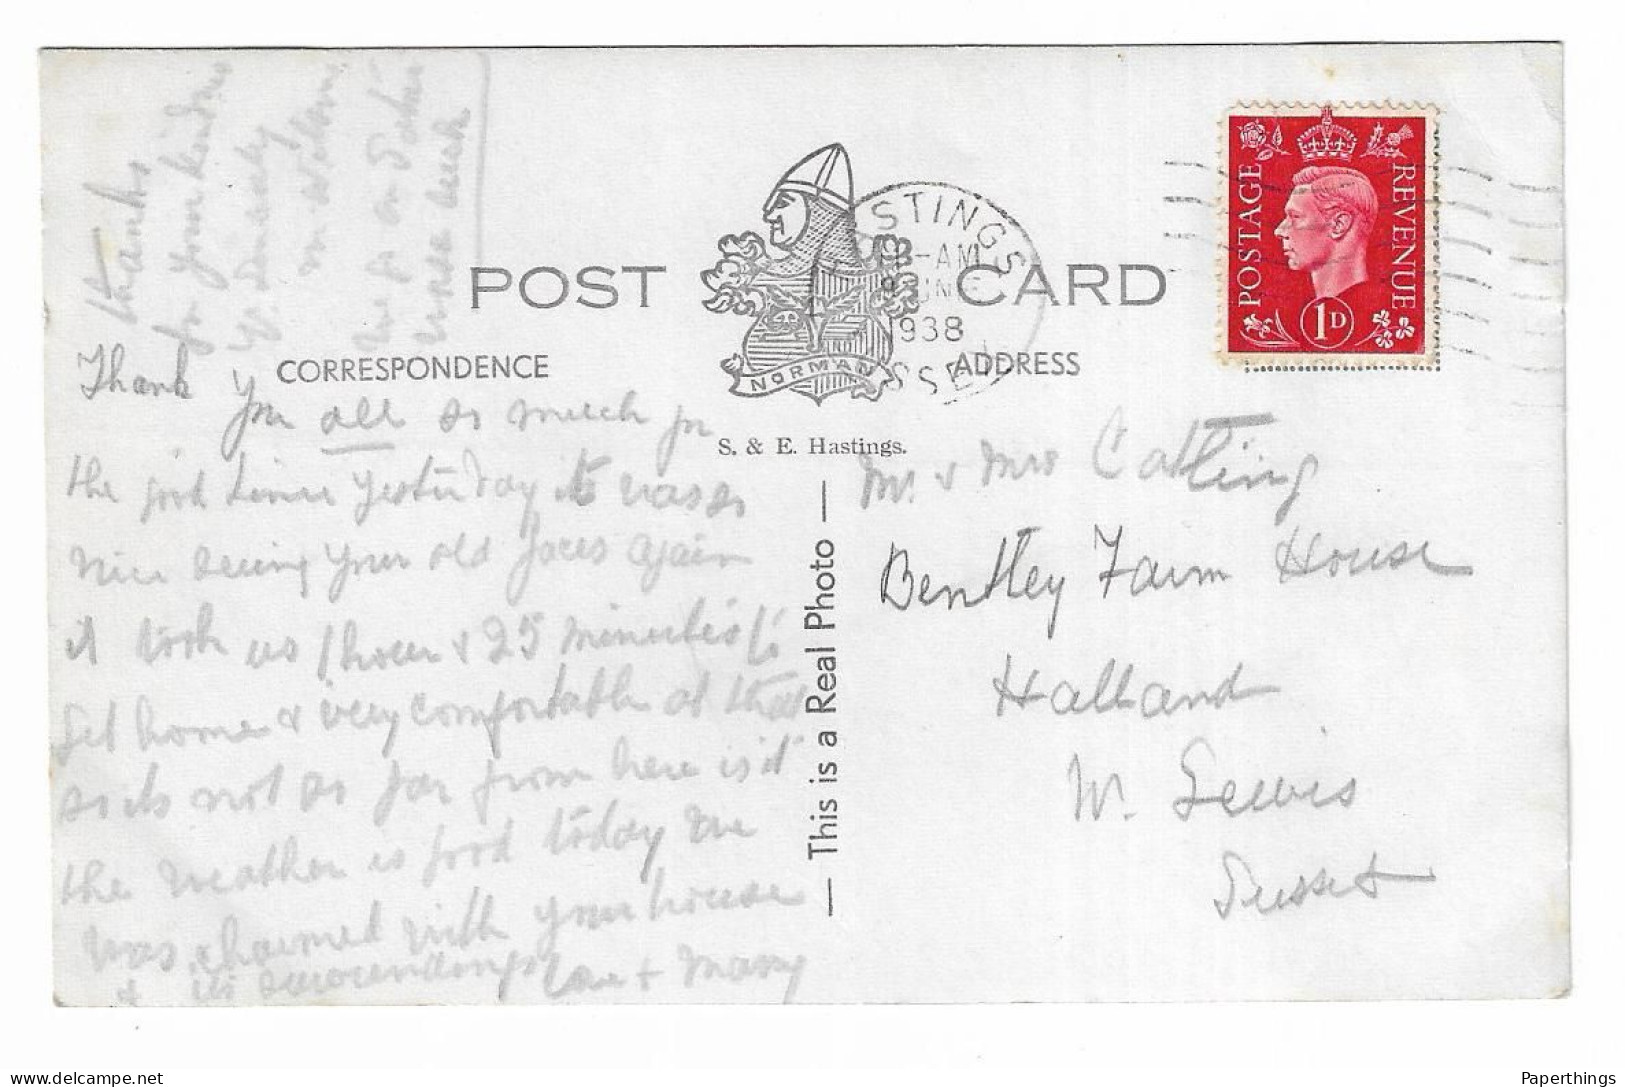 POST CARD
CORRESPONDENCE
ADDRESS
NORMAN
S. & E. Hastings.
— This is a Real Photo —
HASTINGS
-AM
JNE
1938
SSE
POSTAGE
REVENUE
1D
Thank you all so much for
the good time yesterday it was so
nice seeing your old faces again
it took us 1 hour & 25 minutes to
get home & very comfortable at that
so its not so far from here is it
the weather is good today we
was charmed with your house
& its surroundings love & Many
thanks
for your kindness
yr. sincerely
Mr & Mrs Catling
Bentley Farm House
Halland
Nr. Lewis
Sussex
Paperthings
delcampe.net/Paperthings